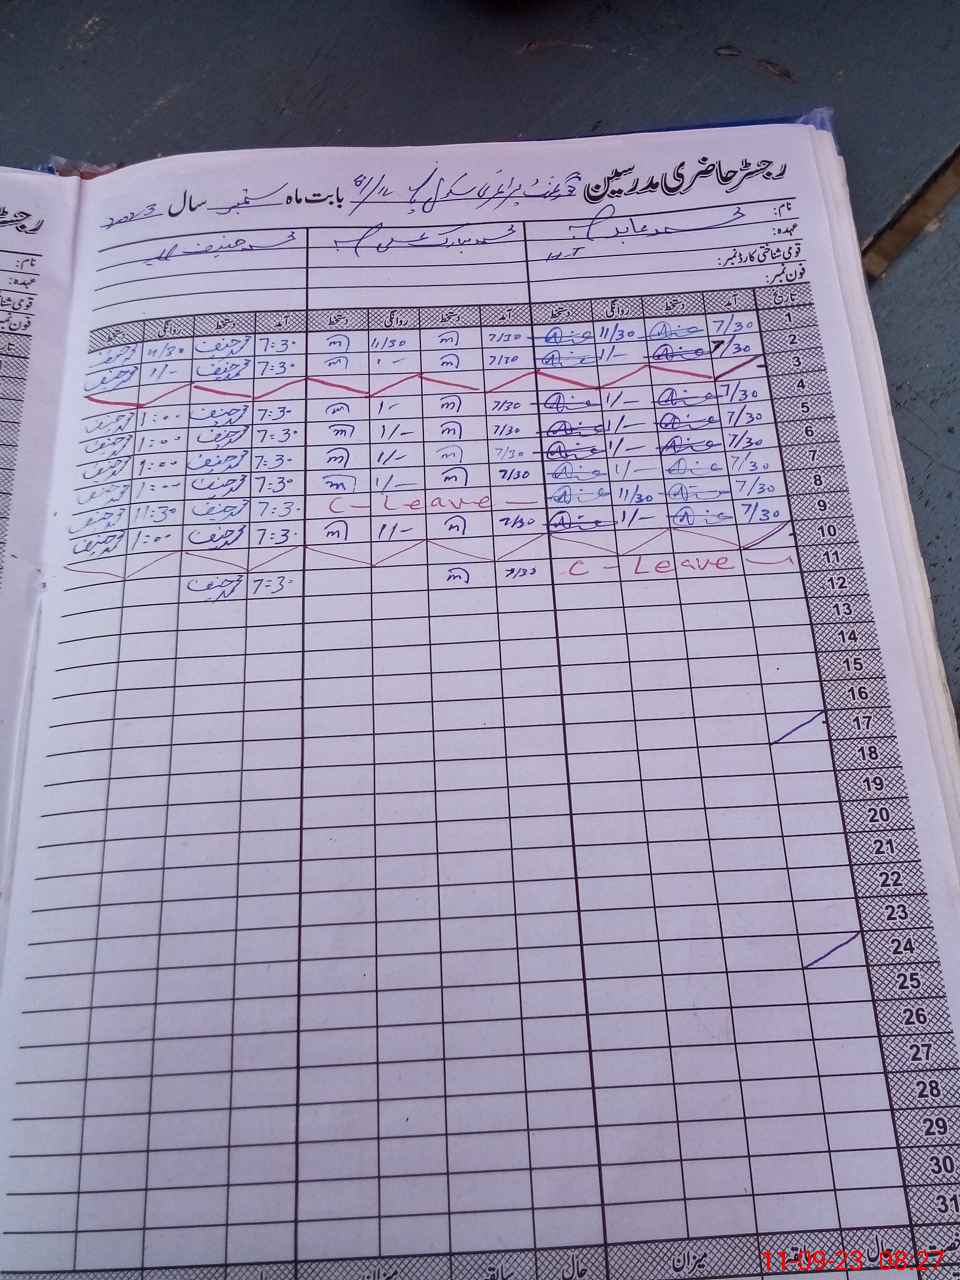 رجسٹر حاضری مدرسین گورنمنٹ پرائمری سکول بابت ماہ ستمبر سال 2023
نام: محمد عابد محمد مبارک محمد حنیف
عہدہ:
قومی شناختی کارڈ نمبر:
فون نمبر:
تاریخ آمد دستخط روانگی دستخط آمد دستخط روانگی دستخط آمد دستخط روانگی دستخط
1 7/30 11/30 7/30 m 11/30 m 7:30 محمد حنیف 11/30 محمد حنیف
2 7/30 1/- 7/30 m 1- m 7:30 محمد حنیف 1/- محمد حنیف
3
4 7/30 1/- 7/30 m 1- m 7:30 محمد حنیف 1:00 محمد حنیف
5 7/30 1/- 7/30 m 1/- m 7:30 محمد حنیف 1:00 محمد حنیف
6 7/30 1/- 7/30 m 1/- m 7:30 محمد حنیف 1:00 محمد حنیف
7 7/30 1/- 7/30 m 1/- m 7:30 محمد حنیف 1:00 محمد حنیف
8 7/30 11/30 C-Leave 7:30 محمد حنیف 11:30 محمد حنیف
9 7/30 1/- 7/30 m 1/- m 7:30 محمد حنیف 1:00 محمد حنیف
10
11 C-Leave 7/30 m 7:30 محمد حنیف
12
13
14
15
16
17
18
19
20
21
22
23
24
25
26
27
28
29
30
31
میزان حال میزان
11-09-23 08:27
رجسٹر
نام:
عہدہ:
قومی شنا
فون نمبر